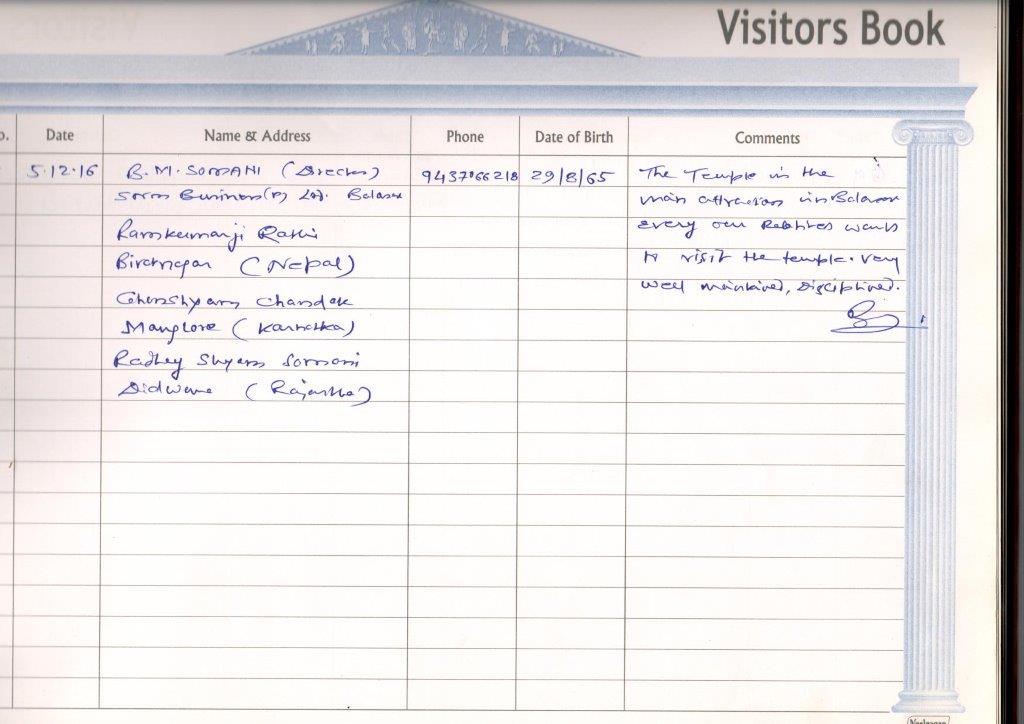 Visitors Book
Date Name & Address Phone Date of Birth Comments
5.12.16 B.M. SOMANI (Director) 29/8/65 The Temple is the
Business(P) Ltd. Balasore main attraction in Balasore
Ramkumarji Rathi every our Relatives wants
Biratnagar (Nepal) to visit the temple. very
Ghanshyam Chandak well maintained, Disciplined.
Manglore (Karnatka)
Radhey Shyam Somani
Didwana (Rajastha)